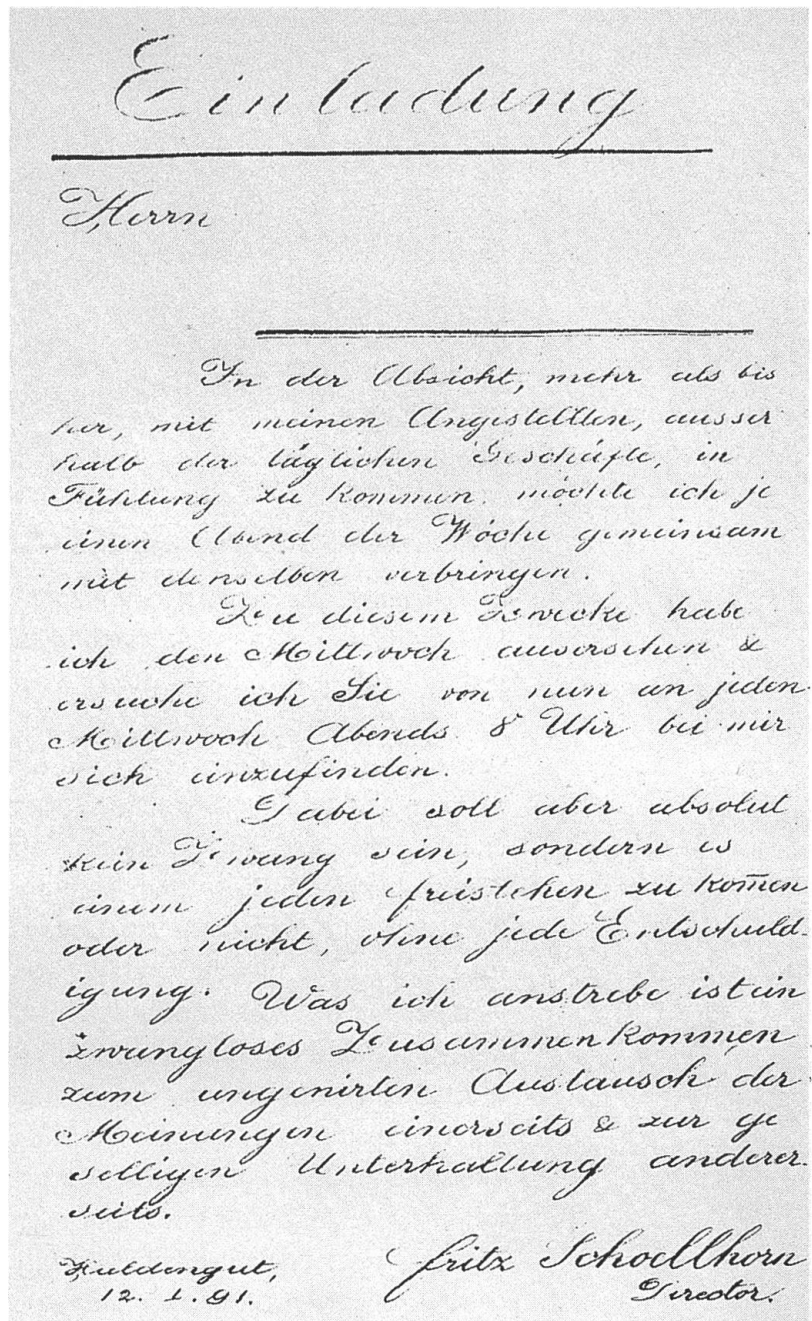 Einladung
Herrn
In der Absicht, mehr als bis
her, mit meinen Angestellten, ausser
halb der täglichen Geschäfte, in
Fühlung zu kommen, möchte ich je
einen Abend der Woche gemeinsam
mit denselben verbringen.
Zu diesem Zwecke habe
ich den Mittwoch ausersehen &
ersuche ich Sie von nun an jeden
Mittwoch Abends 8 Uhr bei mir
sich einzufinden.
Dabei soll aber absolut
kein Zwang sein, sondern es
einem jeden freistehen zu kom̄en
oder nicht, ohne jede Entschuld-
igung. Was ich anstrebe ist ein
zwangloses Zusammenkommen
zum ungenirten Austausch der
Meinungen einerseits & zur ge
selligen Unterhaltung anderer-
seits.
Haldengut,
12. I. 91.
Fritz Schoellhorn
Director.